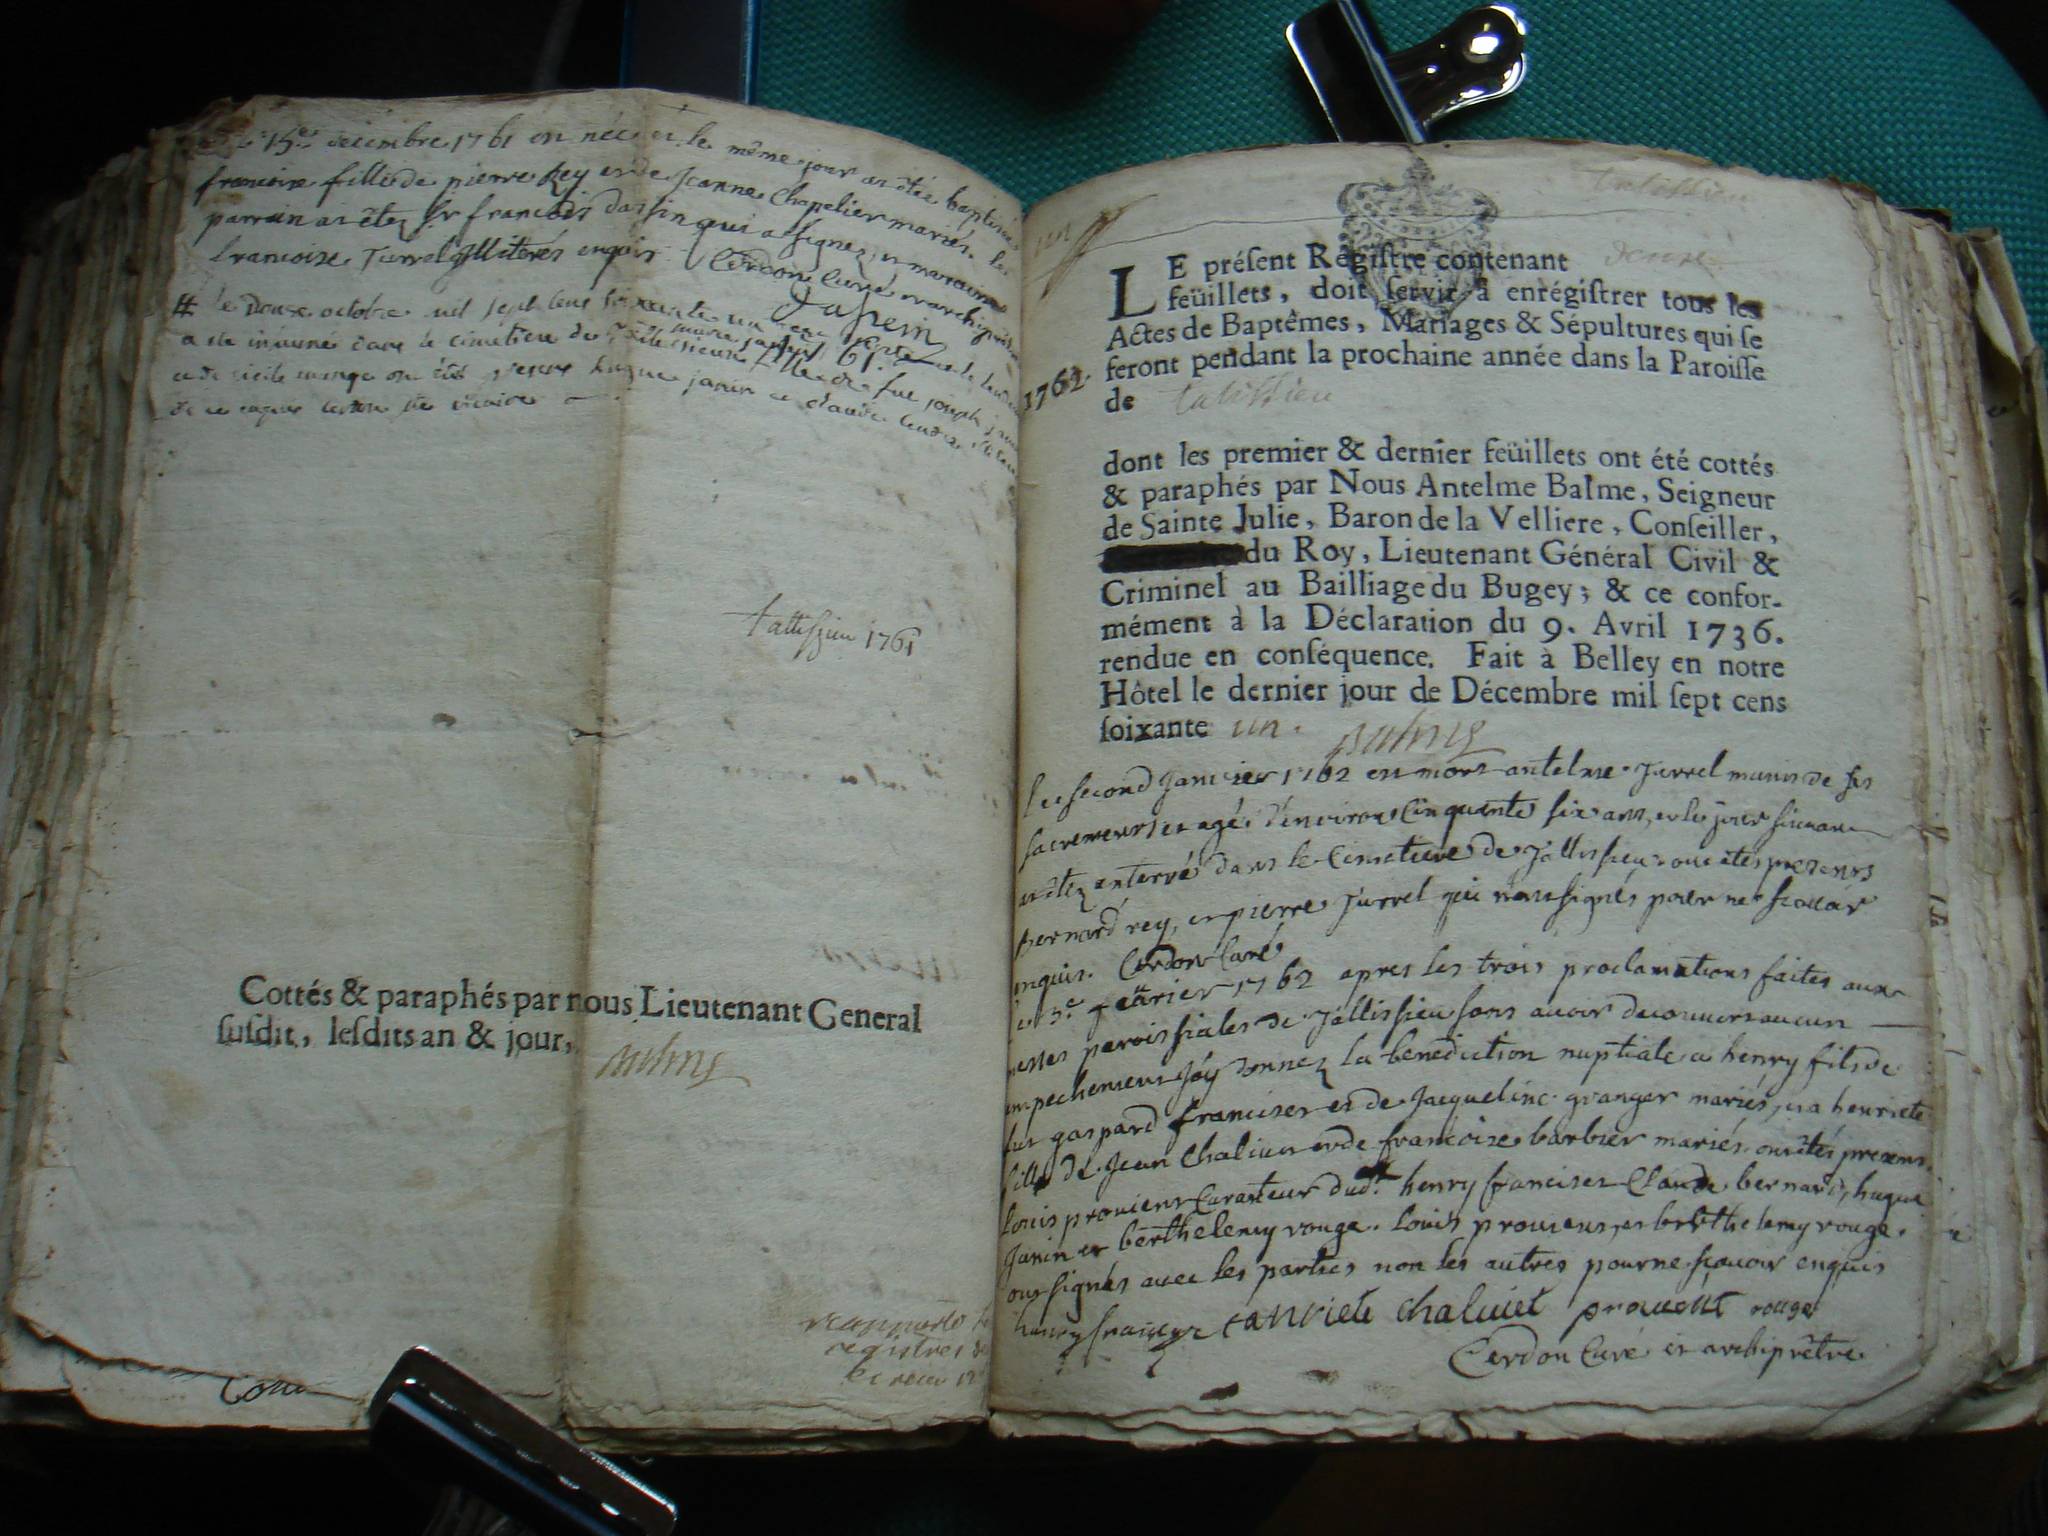 15e decembre 1761 est née et le même jour at étée baptisée
francoise fille de pierre Rey et de Jeanne Chapelier mariés. le
parrain at êtez Sr francois dassin qui a signez, et marraine
francoise Jurrel illiterés enquis Cerdon Curé et archiprêtre
Dassein
# le douze octobre mil sept cens soixante un
a été inhumé dans le cimetière de
hugue janin et claude
de ce enquis cerdon vicaire
tallissieu 1761
Cottés & paraphés par nous Lieutenant General
ſuſdit, leſdits an & jour,
Balme
registres
talissieu
LE préſent Régiſtre contenant douze
feüillets, doit ſervir à enrégiſtrer tous les
Actes de Baptêmes, Mariages & Sépultures qui ſe
feront pendant la prochaine année dans la Paroiſſe
1762.
de talissieu
dont les premier & dernier feüillets ont été cottés
& paraphés par Nous Antelme Balme, Seigneur
de Sainte Julie, Baron de la Velliere, Conſeiller,
du Roy, Lieutenant Général Civil &
Criminel au Bailliage du Bugey; & ce confor-
mément à la Déclaration du 9. Avril 1736.
rendue en conſéquence. Fait à Belley en notre
Hôtel le dernier jour de Décembre mil ſept cens
ſoixante un.
Balme
Le second Janvier 1762 est mort antelme Jurrel munis de ses
sacremens et agé d'environ Cinquante six ans, et le jour suivant
at êtez enterré dans le Cimetiere de Tallissieu ont étés presents
Bernard rey, et pierre Jurrel qui n'ont signés pour ne scavoir
enquis. Cerdon Curé
le 3e fevrier 1762 apres les trois proclamations faites aux
messes paroissiales de Tallissieu sans avoir decouvert aucun
empechement j'ay donnez la benediction nuptiale a henry fils de
feu gaspard francisez et de Jacqueline granger mariés, et a henriete
fille de Jean Chaliuet et de francoise barbier mariés. ont étés presens
Louis prouient Curateur dudt. henry francisez Claude bernard, hugue
Janin et berthelemy rouge. Louis prouient, et berthelemy rouge.
ont signés avec les parties non les autres pour ne scavoir enquis
henry francisez enriete chaluiet prouent rouge
Cerdon Curé et archiprêtre